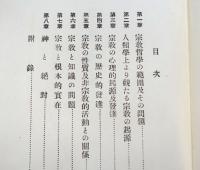 目次
第一章 宗教哲學の範圍及その問題
第二章 人類學上より觀たる宗教の起源
第三章 宗教の心理的起源及發達
第四章 宗教の歷史的發達
第五章 宗教の性質及非宗教的活動との關係
第六章 宗教と知識の問題
第七章 宗教と根本的實在
第八章 神と絕對
附錄